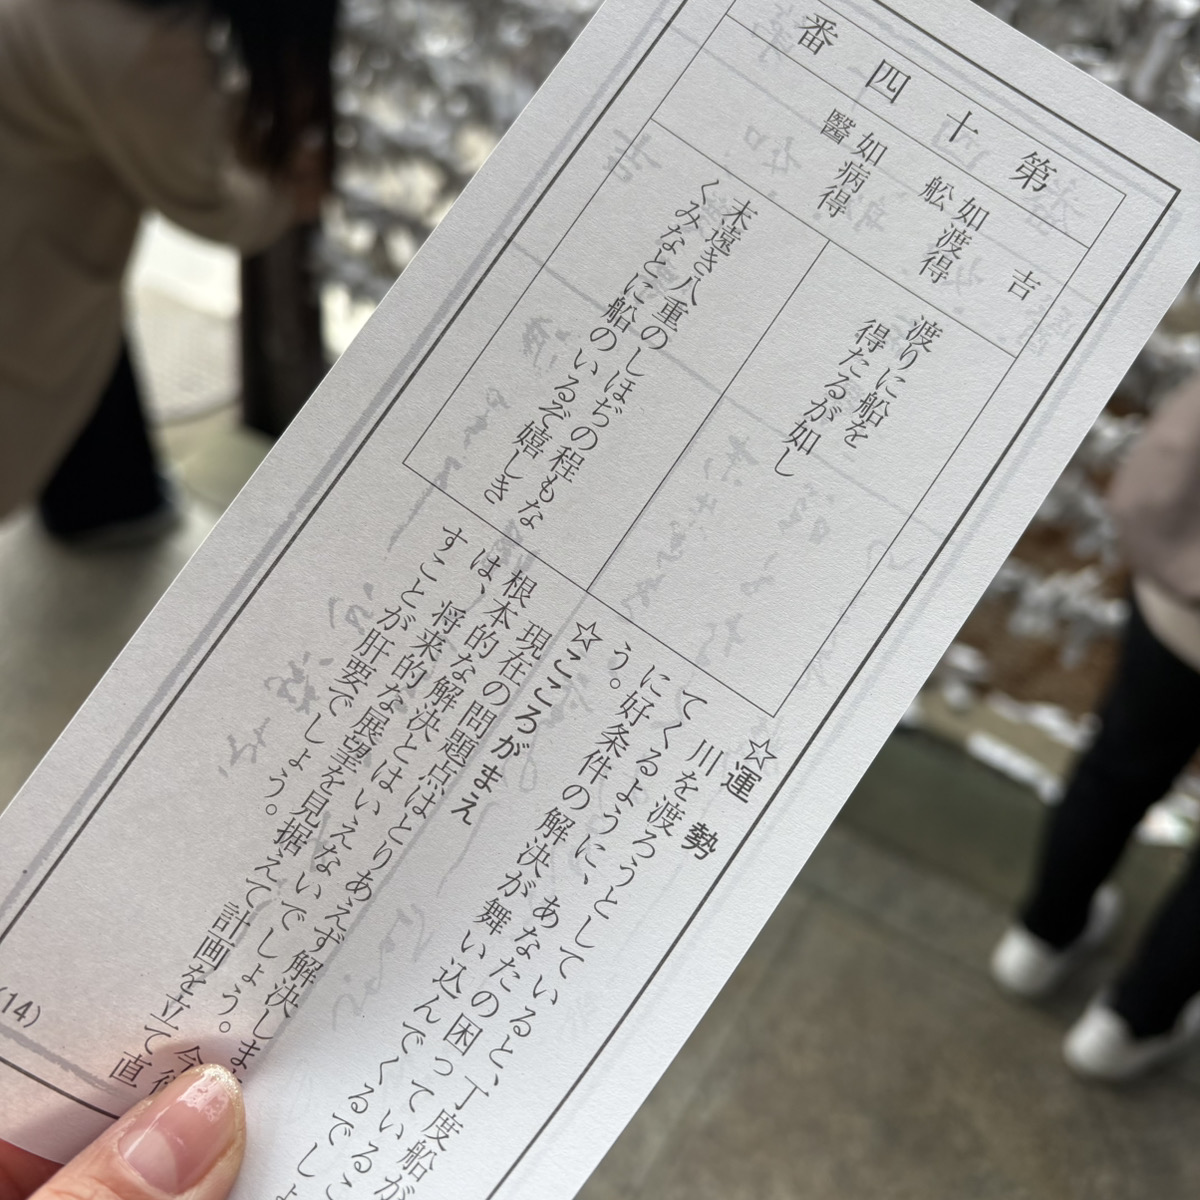 第十四番
吉
如渡得
舩
如病得
醫
渡りに船を
得たるが如し
末遠き八重のしほぢの程もな
くみなとに船のいるぞ嬉しき
☆運勢
川を渡ろうとしていると、丁度船が
てくるように、あなたの困っているこ
に好条件の解決が舞い込んでくるでしょ
う。
☆こころがまえ
現在の問題点はとりあえず解決しま
根本的な解決とはいえないでしょう。今後
は、将来的な展望を見据えて計画を立て直
すことが肝要でしょう。
(14)